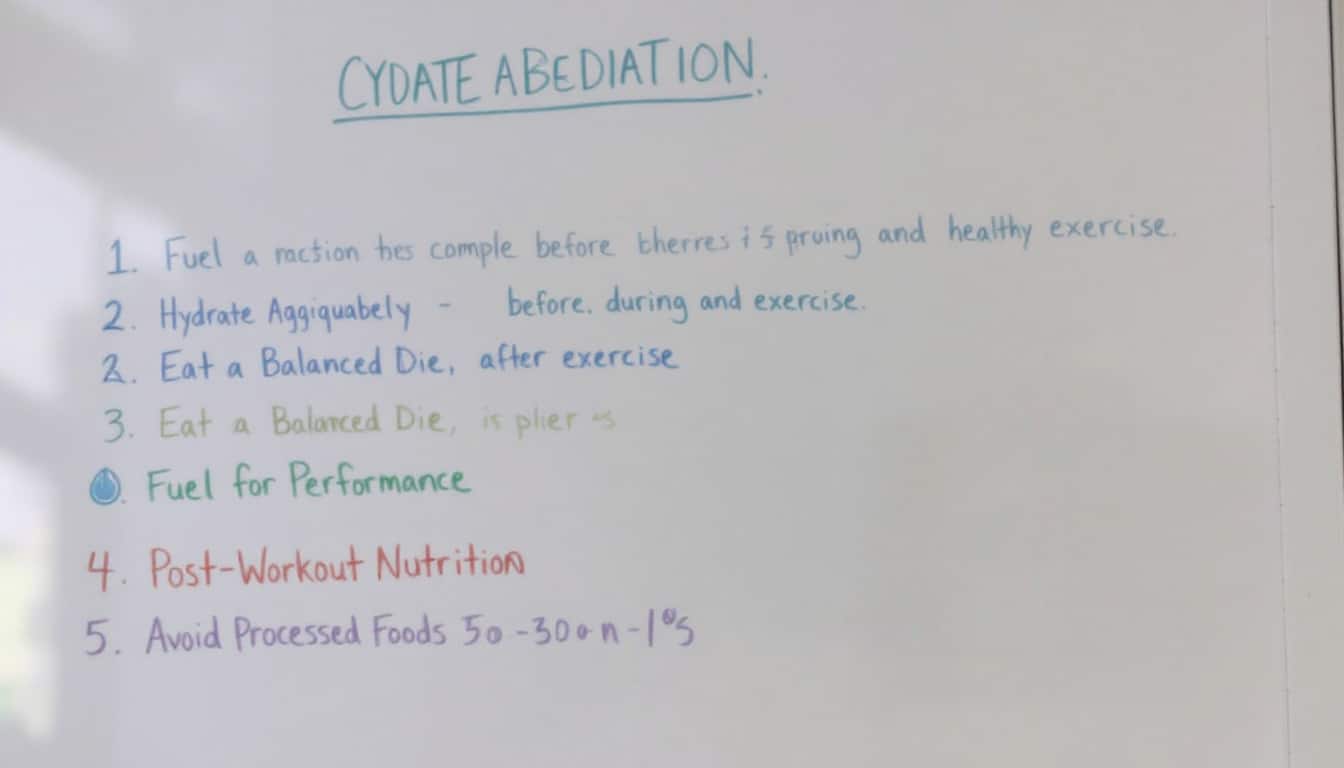 CYDATE ABEDIATION.
1. Fuel a raction hes comple before therres is pruing and healthy exercise.
2. Hydrate Aggiquabely - before. during and exercise.
2. Eat a Balanced Die, after exercise
3. Eat a Balanced Die, is plier
Fuel for Performance
4. Post-Workout Nutrition
5. Avoid Processed Foods 50-300n-1